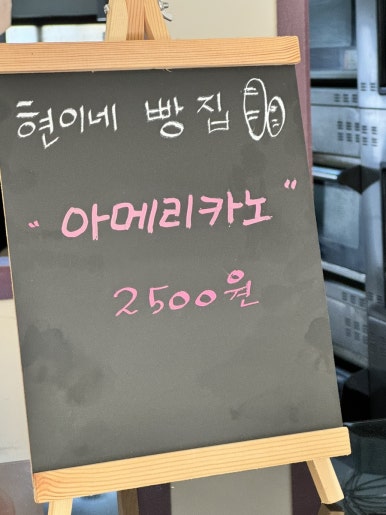 현이네 빵집
"아메리카노"
2500원